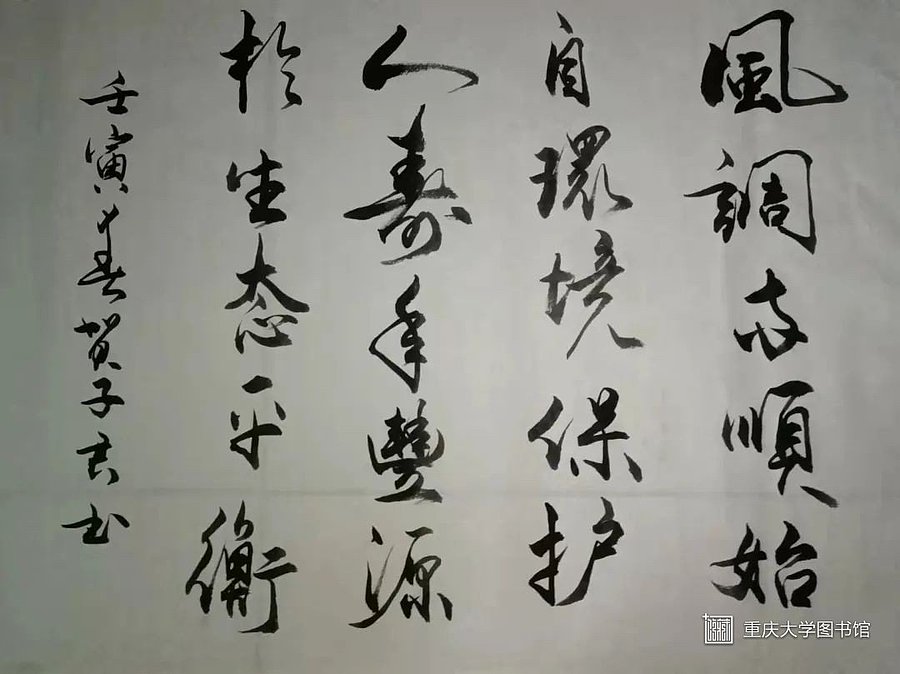 風調雨順始
自環境保护
人壽年豐源
於生态平衡
壬寅年春贺子君书
重庆大学图书馆